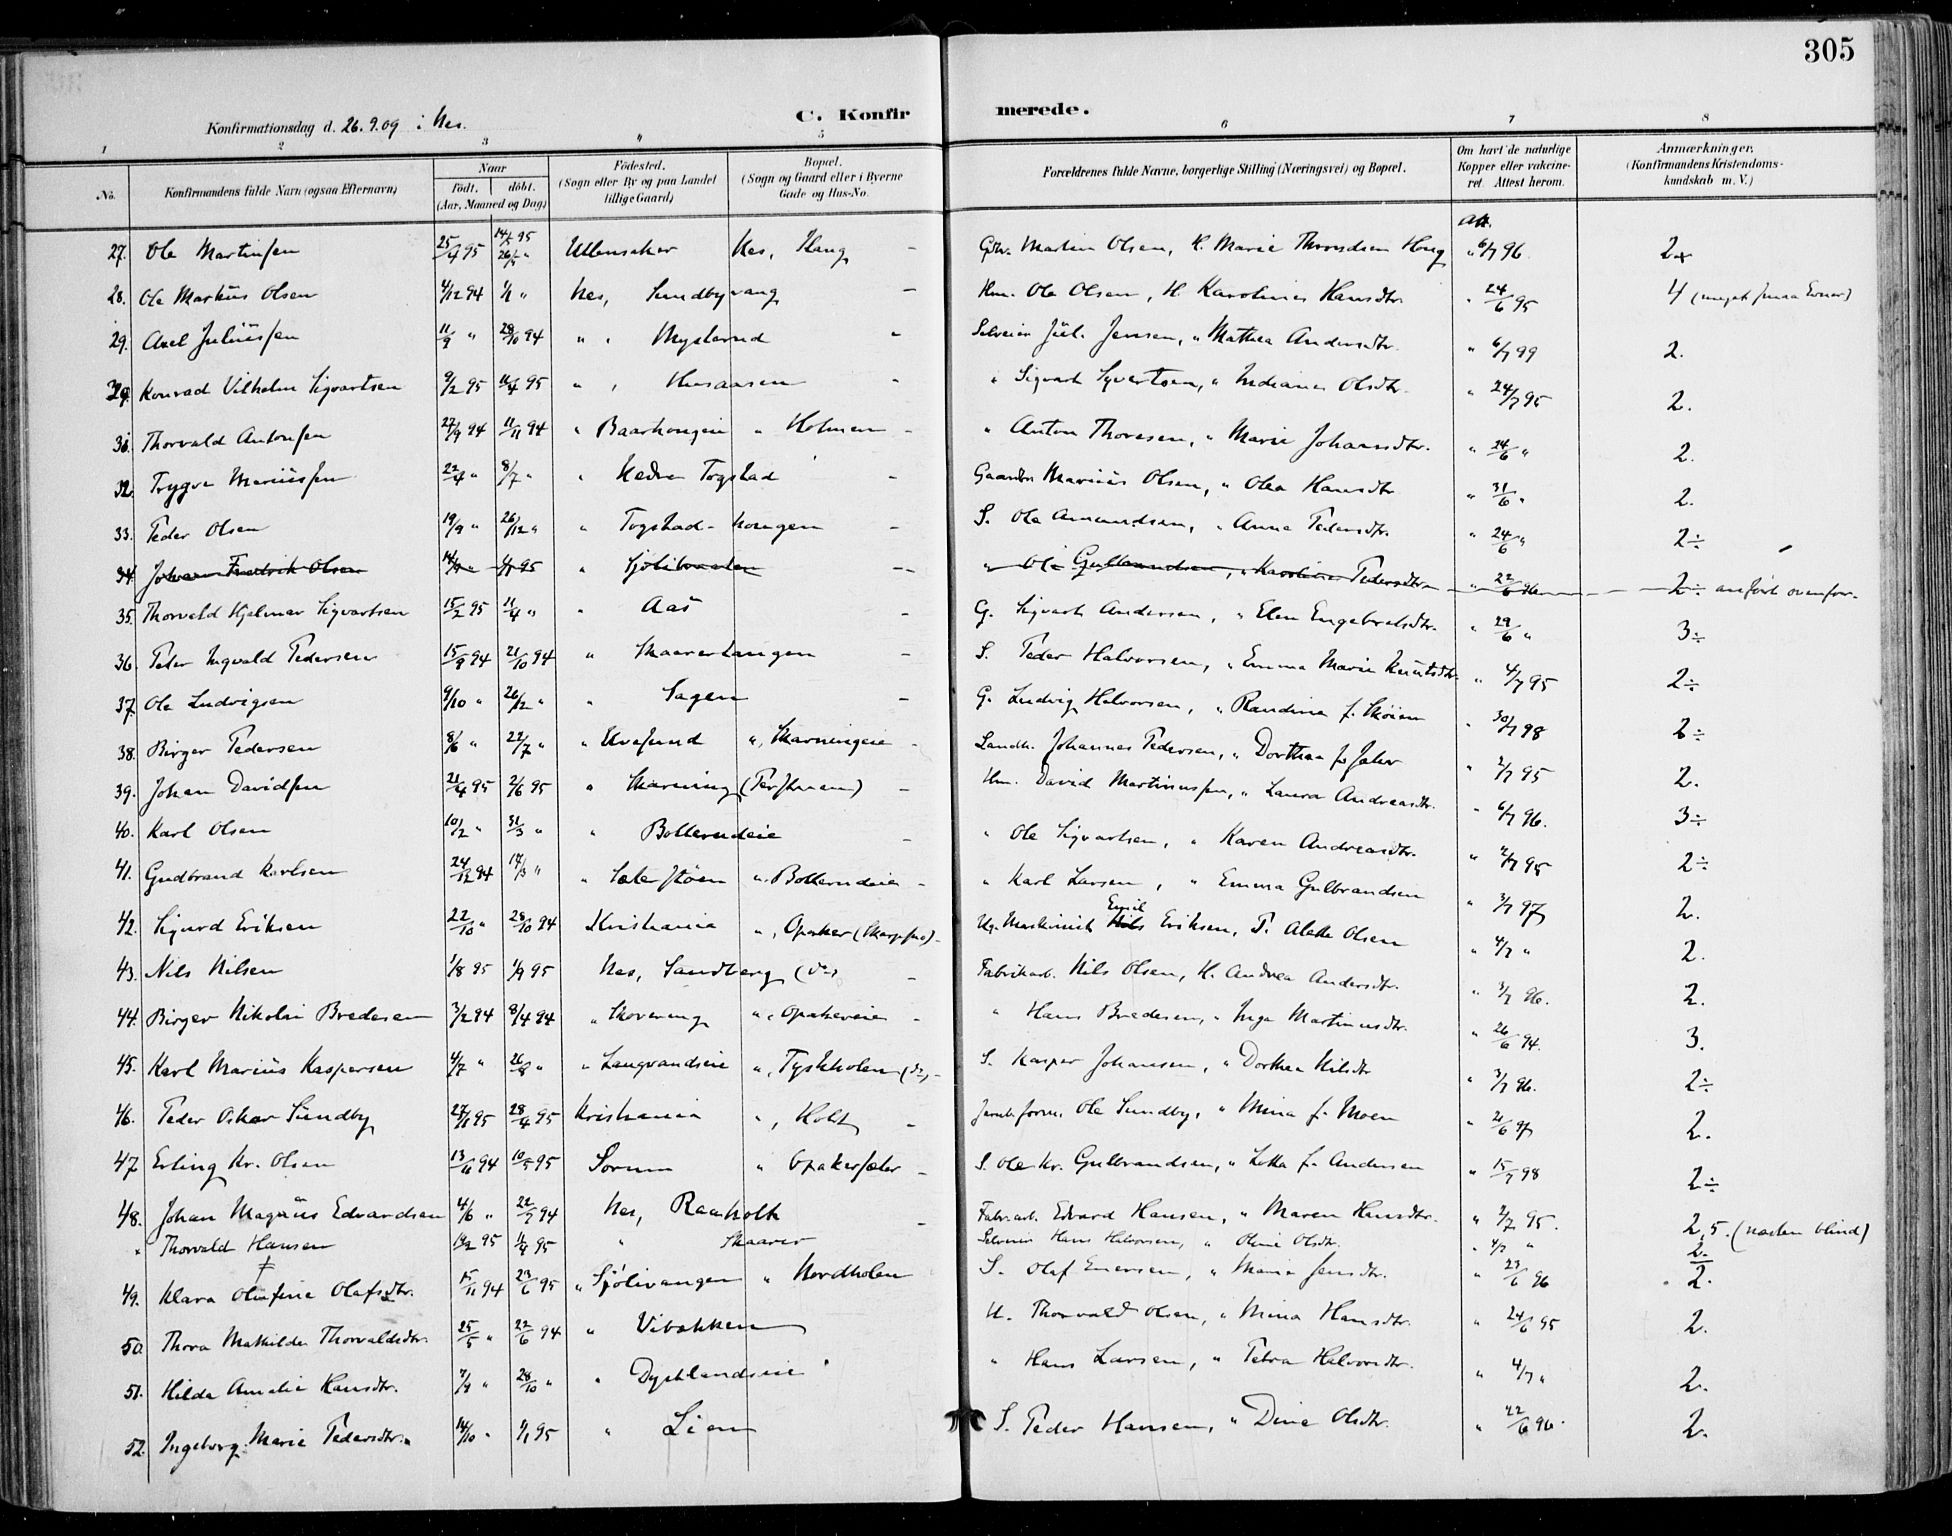 305
C. Konfirmerede.
Konfirmationsdag d. 26.9.09 i Nes.
1 2 3 " 5 6 7 8
No. Konfirmandens fulde Navn (ogsaa Efternavn) Naar Födt. döbt. (Aar, Maaned og Dag) Födested. (Sogn eller By og paa Landet tillige Gaard) Bopæl. (Sogn og Gaard eller i Byerne Gade og Hus-No. Forældrenes fulde Navne, borgerlige Stilling (Næringsvei) og Bopæl. Om havt de naturlige Kopper eller vakcineret. Attest herom. Anmærkninger. (Konfirmandens Kristendomskundskab m. V.)
Att.
27. Ole Martinsen 25/4 95 14/5 95 26/5 " Ullensaker Nes, Haug – Gbr. Martin Olsen, H. Marie Throndsen Haug " 6/7 96 2+
28. Ole Markus Olsen 4/12 94 1/1 " Nes, Sundbyvang – Hm. Ole Olsen, H. Karoline Hansdtr. " 24/6 95 4 (meget smaa Evner)
29. Axel Juliussen 11/9 " 28/10 94 " " Myslerud " Selveier Jül. Jensen, " Mathea Andersdtr. " 6/7 99 2.
Konrad Vilhelm Sigvartsen 9/2 95 11/4 95 " , Husaasen - " Sigvart Syvertsen, " Indiane Olsdtr. " 24/7 95 2.
31. Thorvald Antonsen 27/9 94 11/11 94 " Baarhougeie " Holmen - " Anton Thoresen, " Marie Johansdtr. " 24/6 " 2.
32. Trygve Mariüssen 22/4 " 8/7 " " Nedre Togstad - Gaardbr. Mariüs Olsen, " Olea Hansdtr. " 31/6 " 2.
33. Peder Olsen 19/9 " 26/12 " " Togstad-hougen – S. Ole Amundsen, " Anne Pedersdtr. " 24/6 " 2÷
34. Johan Fredrik Olsen 14/9 " 1/1 95 " Sjölibraaten -- " Ole Gulbrandsen, " Karoline Pedersdtr. " 22/6 96 2÷ anført ovenfor.
35. Thorvald Hjelmar Sigvartsen 15/2 95 11/4 " " Aas – G. Sigvart Andersen, " Elen Engebretsdtr. " 29/6 " 3÷
36. Peder Ingvald Pedersen 15/8 94 21/10 94 " Skaarertangen – S. Peder Halvorsen, " Emma Marie Knutsdtr. " 4/7 95 2÷
37. Ole Ludvigsen 9/10 " 26/12 " " Sagen – G. Ludvig Halvorsen, " Randine f. Skøien " 30/7 98 2÷
38. Birger Pedersen 8/6 " 22/7 " " Uvesund ", Skarningeie - Landh. Johannes Pedersen, " Dorthea f. Jaler " 2/7 95 2.
39. Johan Davidsen 21/4 95 2/6 95 " Skarning (Pershuen) – Hm. David Martinussen, " Laura Andreasdtr. " 6/7 96. 3÷
40. Karl Olsen 10/2 " 31/3 " " Bollerudeie – " Ole Sigvartsen, " Karen Andreasdtr. " 2/7 95 2÷
41. Gudbrand Karlsen 24/12 94 17/3 " " Sæterstöen " Bollerudeie - " Karl Larsen, " Emma Gulbrandsen " 3/7 97 2.
42. Sigurd Eriksen 22/10 " 28/10 94 Kristiania ", Opaker (Skarpsno) - Ug. Maskinist Emil Eriksen, P. Alette Olsen " 4/7 " 2.
43. Nils Nilsen 1/8 95 1/9 95 Nes, Sandberg (do) – Fabrikarb. Nils Olsen, H. Andrea Andersdtr. " 3/7 96. 2.
44. Birger Nikolai Bredesen 3/2 94 8/4 94 " Skovering ", Opakereie - " Hans Bredesen, " Inga Martinusdtr. " 26/6 94. 3.
45. Karl Mariüs Kaspersen 4/7 " 26/8 " " Langrandseie ", Tyskholen (do) - S. Kasper Johansen, " Dorthea Nilsdtr " 3/7 96. 2÷
46. Peder Oskar Sündby 27/1 95 28/4 95 Kristiania ", Holt - Ole Sundby, " Mina f. Moen " 2/6 97 2.
47 Erling Kr. Olsen 13/11 94 10/5 95 Sörum " Opakersæter – S. Ole Kr. Gulbrandsen, " Lotta f. Andersen " 15/7 98 2÷
48. Johan Magnüs Edvardsen 4/6 " 22/7 94 Nes, Raaholt – Fabr.arb. Edvard Hansen, " Maren Hansdtr. " 2/7 95. 2,5. (næsten blind)
" Thorvald Hansen 19/2 95 11/4 95 " Skaarer Selveier Hans Halvorsen, " Oline Olsdtr. " 4/7 " 2.
49. Klara Olufine Olafsdtr. 15/11 94 23/6 95 " Sjölivangen " Nordholen S. Olaf Enersen, " Maria Jensdtr. " 23/6 96 2.
50. Thora Mathilde Thorvaldsdtr. 25/5 " 22/6 94 " Vibakken U. Thorvald Olsen, " Mina Hansdtr. " 24/6 95 2.
51. Hilda Amalie Hansdtr. 7/9 " 28/10 " " Dystlandseie " Hans Larsen, " Petra Halvorsdtr. " 4/7 " 2.
52. Ingeborg Marie Pedersdtr. 14/10 " 1/1 95 " Lien S. Peder Hansen, " Dina Olsdtr. " 22/6 96. 2.